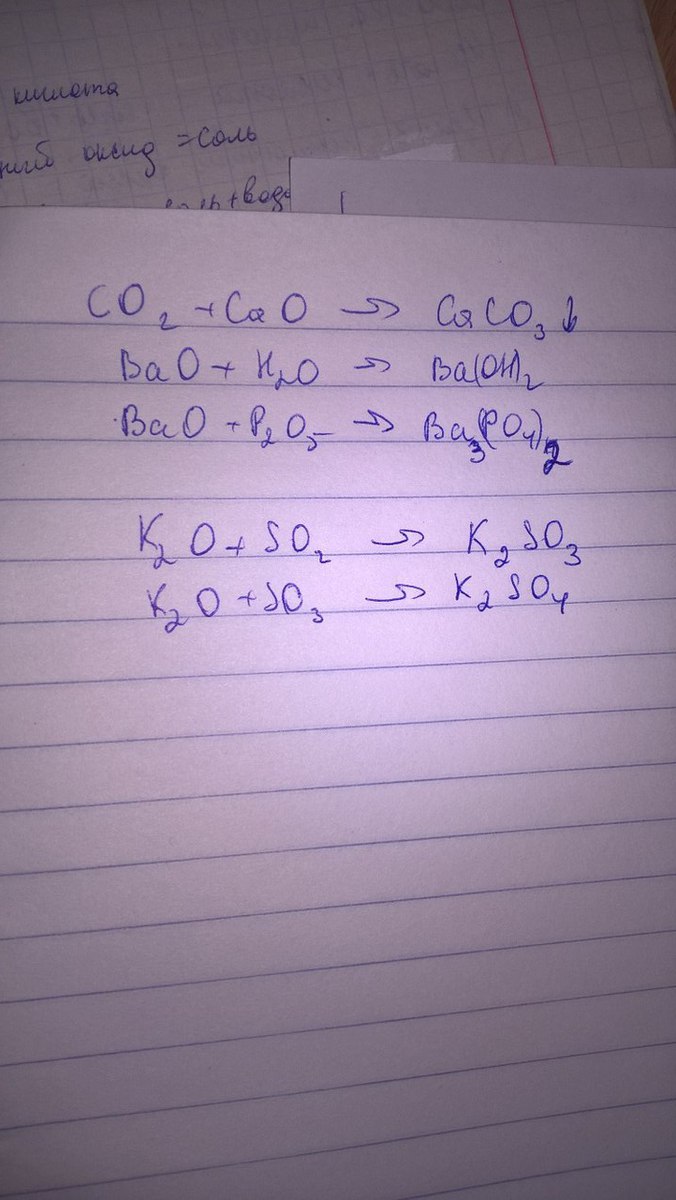 кислота
оксид = соль
+вода
CO₂ + CaO → CaCO₃↓
BaO + H₂O → Ba(OH)₂
BaO + P₂O₅ → Ba₃(PO₄)₂
K₂O + SO₂ → K₂SO₃
K₂O + SO₃ → K₂SO₄